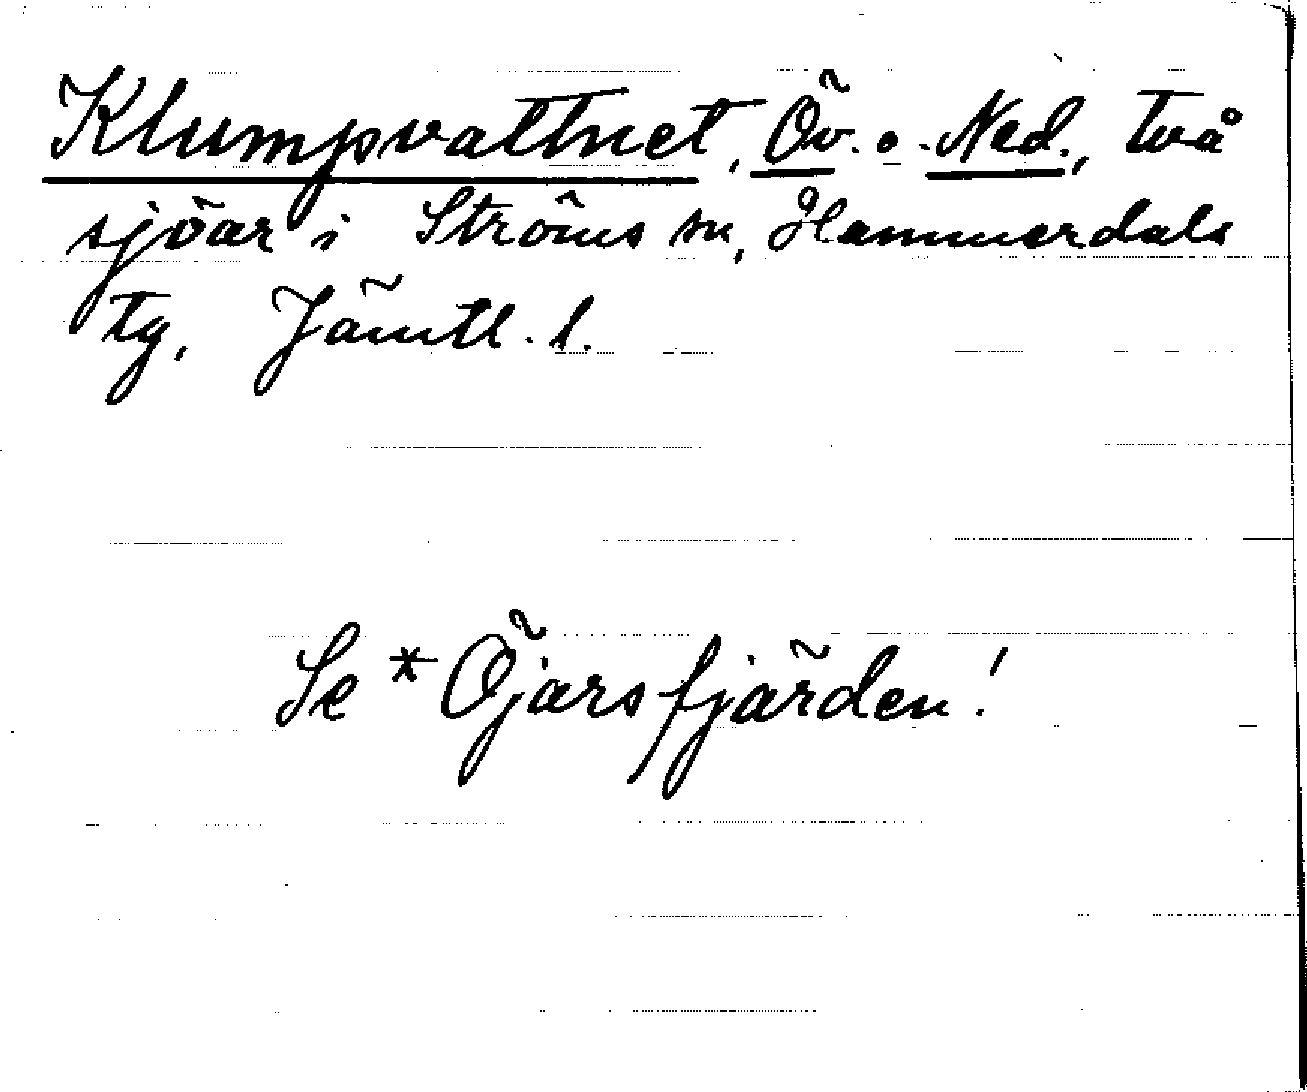 Klumpvattnet, Öv. o. Ned., två
sjöar i Ströms sn, Hammerdals
tg, Jämtl. l.
Se * Öjarsfjärden!